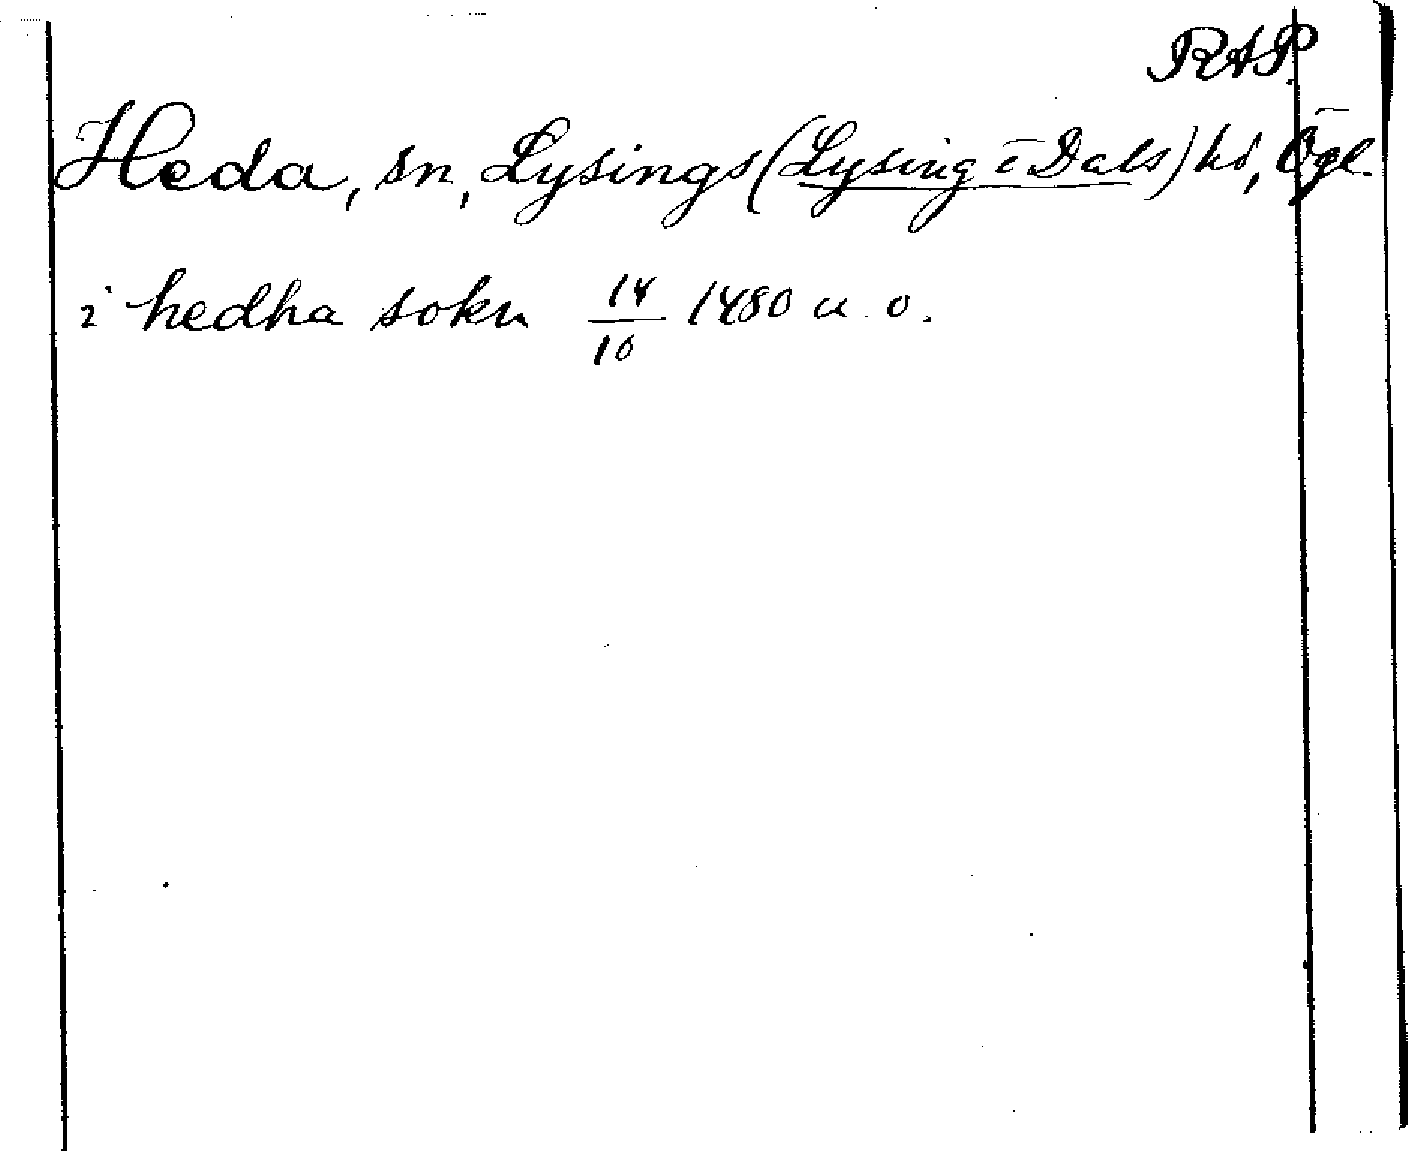 RAP.
Heda, sn, Lysings (Lysing i Dals) hd, Ögl.
i hedha sokn 14/10 1480 u. o.